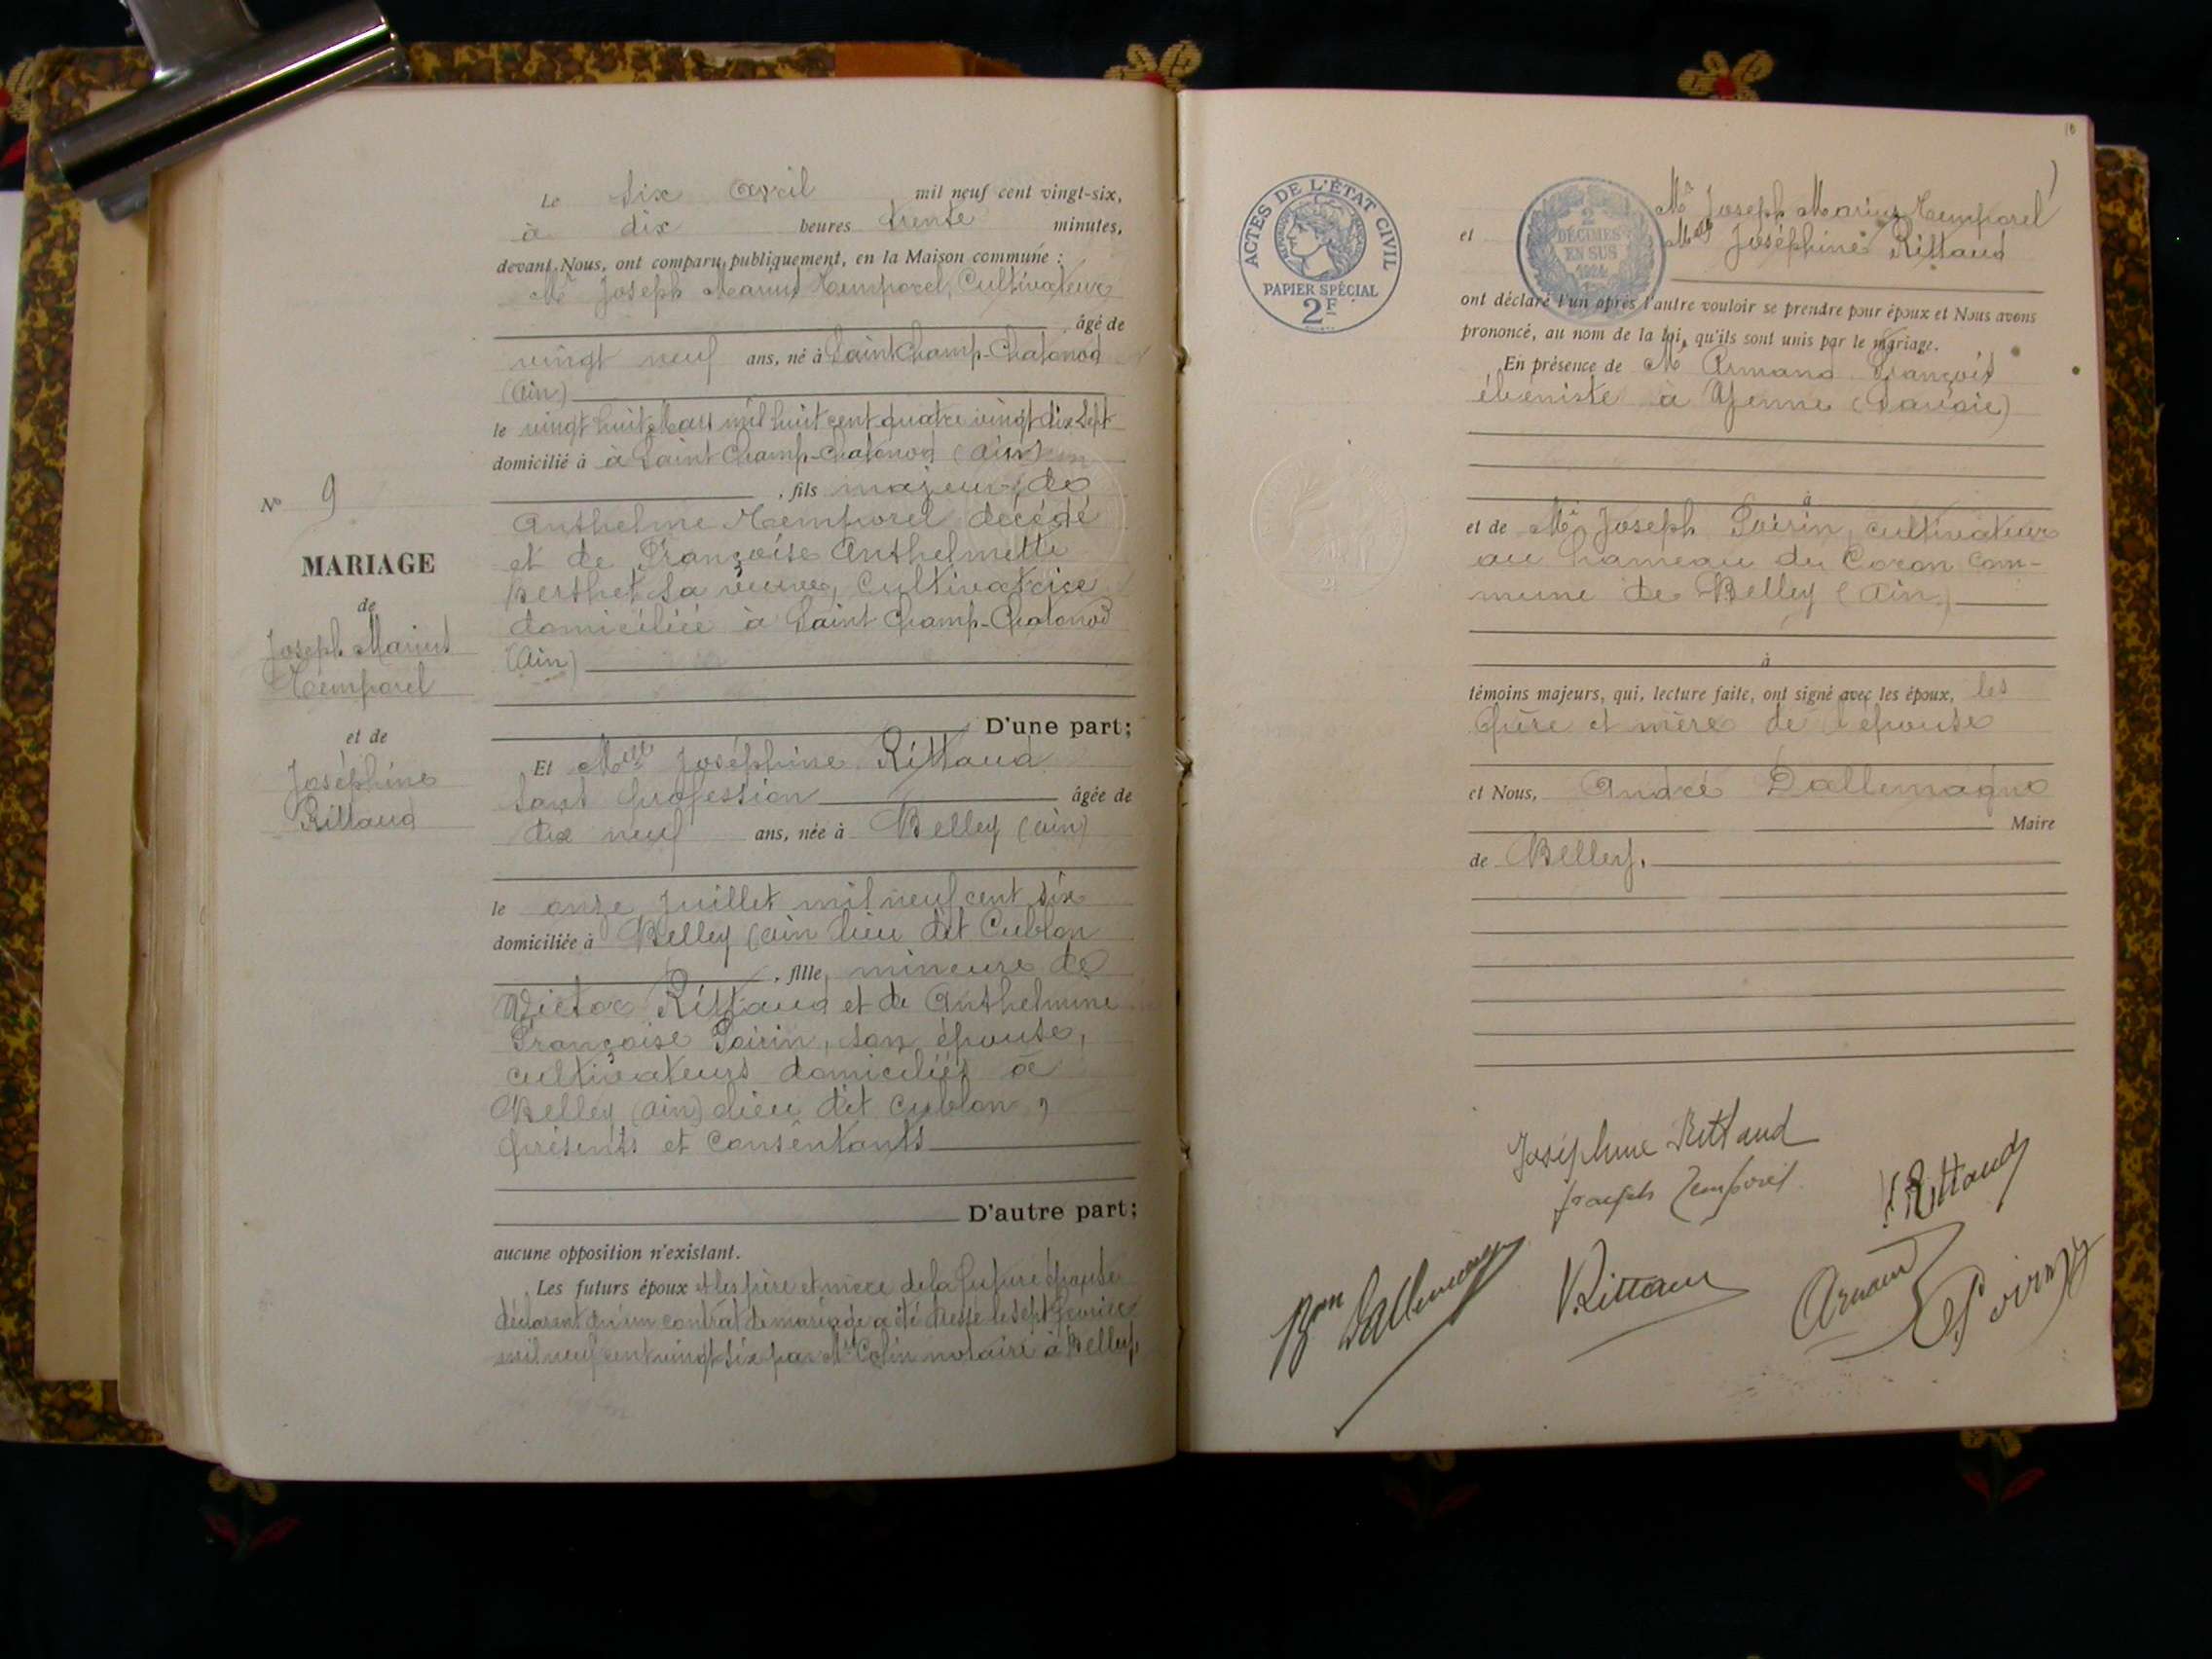 Le six avril mil neuf cent vingt-six,
à dix heures trente minutes,
devant Nous, ont comparu publiquement, en la Maison commune :
Mr Joseph Marius Temporel, Cultivateur
âgé de
vingt neuf ans, né à Saint Champ-Chatonod
(Ain)
le vingt huit Mars mil huit cent quatre vingt dix sept
domicilié à à Saint Champ-Chatonod (Ain)
, fils majeur de
Anthelme Temporel décédé
et de Françoise Anthelmette
Berthet sa veuve, Cultivatrice
domiciliée à Saint Champ-Chatonod
(Ain)
D'une part;
Et Melle Joséphine Rittaud
sans profession âgée de
dix neuf ans, née à Belley (Ain)
le onze juillet mil neuf cent six
domiciliée à Belley (Ain lieu dit Cublon
, fille mineure de
Victor Rittaud et de Anthelmine
Françoise Poirin, son épouse,
cultivateurs domiciliés à
Belley (Ain) lieu dit Cublon,
présents et consentants
D'autre part;
aucune opposition n'existant.
Les futurs époux et les père et mère de la future épouse
déclarent qu'un contrat de mariage a été dressé le sept février
mil neuf cent vingt six par Me Colin notaire à Belley,
No 9
MARIAGE
de
Joseph Marius
Temporel
et de
Joséphine
Rittaud
10
ACTES DE L'ÉTAT CIVIL
PAPIER SPÉCIAL
2F
2
DÉCIMES
EN SUS
1924
Mr Joseph Marius Temporel
et Melle Joséphine Rittaud
ont déclaré l'un après l'autre vouloir se prendre pour époux et Nous avons
prononcé, au nom de la loi, qu'ils sont unis par le mariage.
En présence de Mr Armand François
ébéniste à Yenne (Savoie)
à
et de Mr Joseph Poirin, cultivateur
au hameau du Coron com-
mune de Belley (Ain)
à
témoins majeurs, qui, lecture faite, ont signé avec les époux, les
père et mère de l'épouse
et Nous, André Dallemagne
Maire
de Belley.
Joséphine Rittaud
Joseph Temporel
Rittaud
Bon Dallemagne
V Rittaud
Armand
Poirin